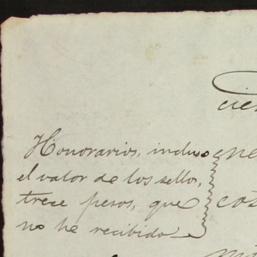 Honorarios, incluso
el valor de los sellos,
trece pesos, que
no he recibido